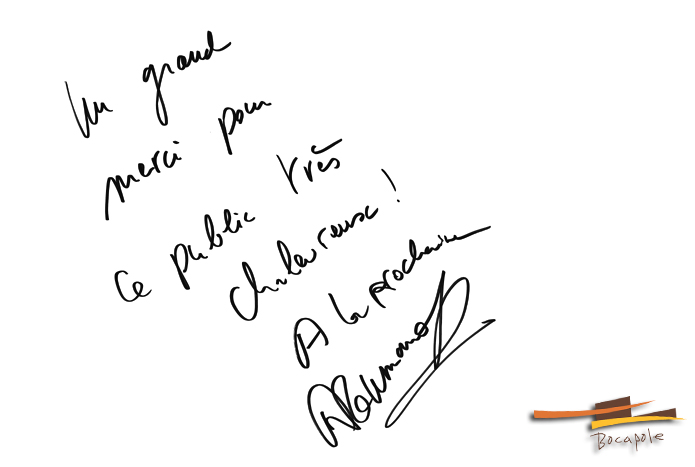 Un grand
merci pour
ce public très
chaleureux !
A la prochaine
Bocapole